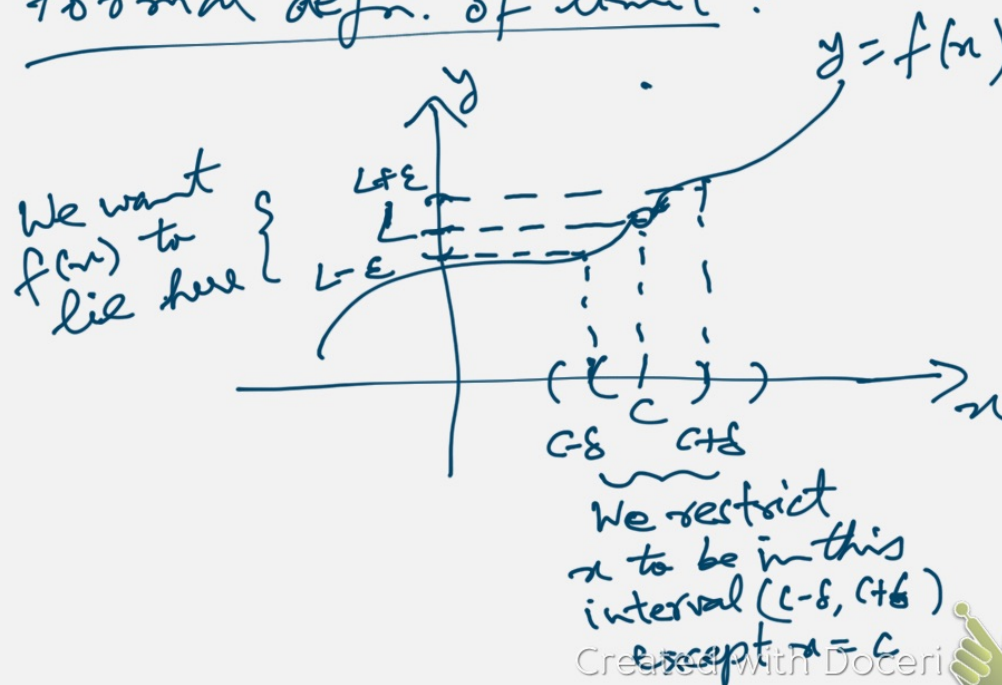 Formal defn. of limit.
y = f(x)
y
L+ε
We want
f(x) to
lie here
L
L-ε
( ( ) )
C
C-δ C+δ
x
We restrict
x to be in this
interval (c-δ, c+δ)
except x = c
Created with Doceri